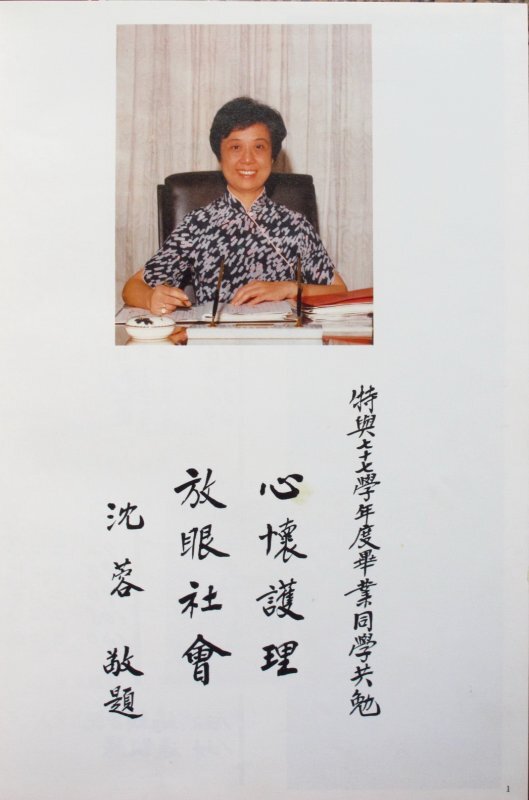 特與七十七學年度畢業同學共勉
心懷護理
放眼社會
沈蓉 敬題
1